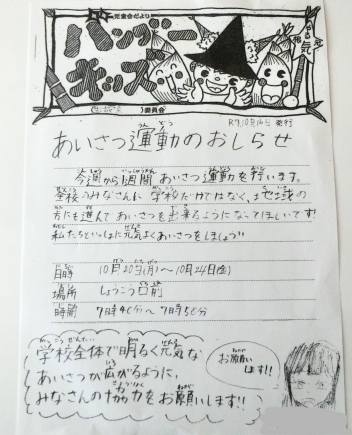 児童会だより
ハンガー
キッズ
委員会
R7.10月16日 発行
あいさつ運動のおしらせ
今週から1週間 あいさつ運動を行います。
全校のみなさんに 学校だけではなく、地域の
方にも進んで あいさつを出来るようになってほしいです!
私たちといっしょに元気よくあいさつをしましょう!!
日時 10月20日(月)～10月24日(金)
場所 しょうこう口前
時間 7時40分～7時50分
学校全体で明るく元気な
あいさつが広がるように、
みなさんの協力をお願いします!!
お願い
します!!